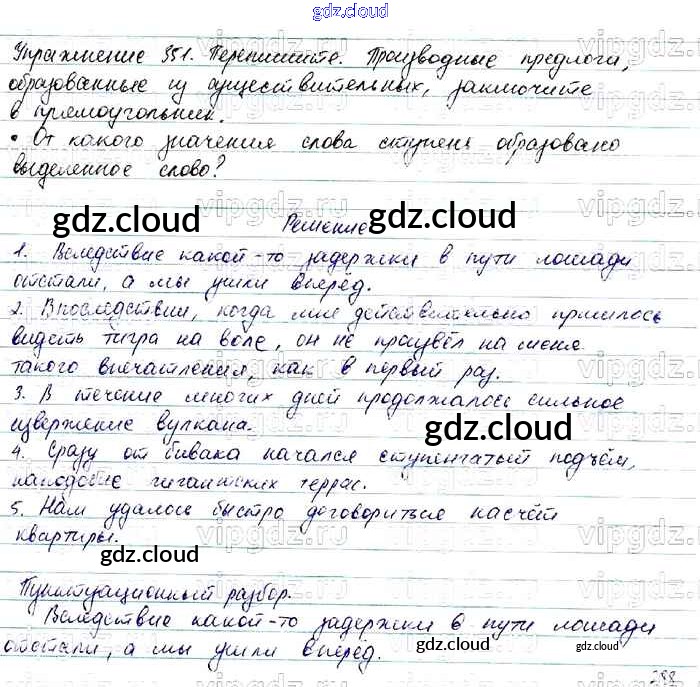 gdz.cloud
Упражнение 351. Перепишите. Производные предлоги,
образованные из существительных, заключите
в прямоугольник.
• От какого значения слова ступень образовано
выделенное слово?
gdz.cloud Решение gdz.cloud
1. Вследствие какой-то задержки в пути лошади
отстали, а мы ушли вперёд.
2. Впоследствии, когда мне действительно пришлось
видеть тигра на воле, он не произвёл на меня
такого впечатления, как в первый раз.
3. В течение многих дней продолжалось сильное
извержение вулкана.
gdz.cloud
4. Сразу от бивака начался ступенчатый подъём,
наподобие гигантских террас.
5. Нам удалось быстро договориться насчёт
квартиры.
gdz.cloud
gdz.cloud
Пунктуационный разбор.
Вследствие какой-то задержки в пути лошади
отстали, а мы ушли вперёд.
gdz.cloud
gdz.cloud
288